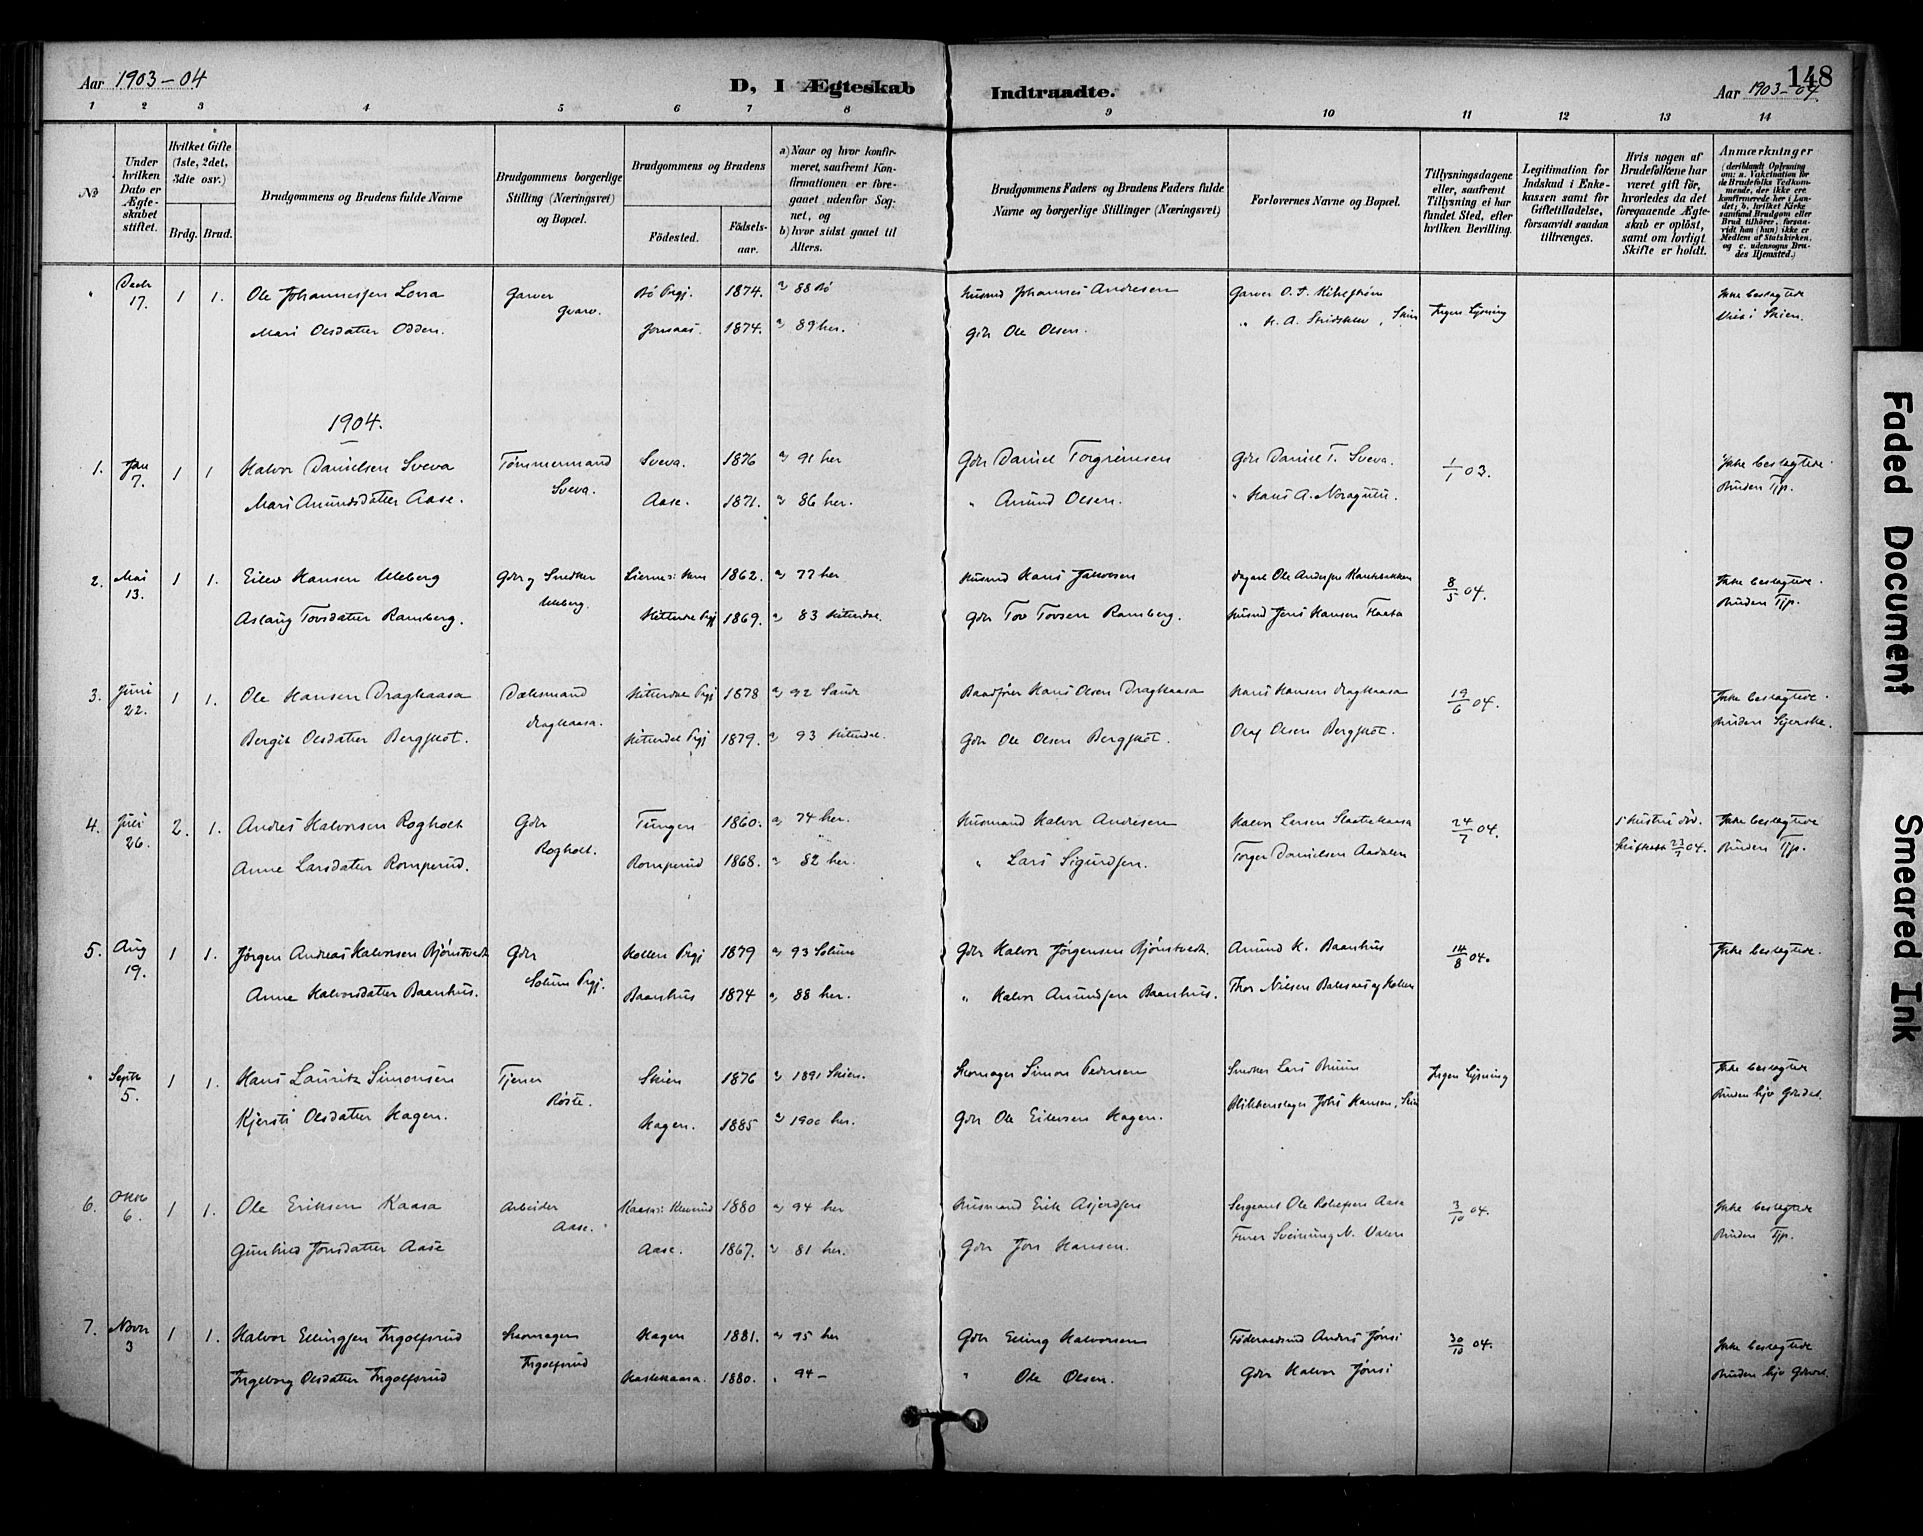 Aar 1903-04
D, I Ægteskab Indtraadte.
Aar 1903-04
148
1 2 3 4 5 6 7 8 9 10 11 12 13 14
No
Under hvilken Dato er Ægteskabet stiftet.
Hvilket Gifte (1ste, 2det, 3die osv.)
Brdg. Brud.
Brudgommens og Brudens fulde Navne
Brudgommens borgerlige Stilling (Næringsvei) og Bopæl.
Brudgommens og Brudens
Födested.
Födselsaar.
a) Naar og hvor konfirmeret, saafremt Konfirmationen er foregaaet udenfor Sognet, og
b) hvor sidst gaaet til Alters.
Brudgommens Faders og Brudens Faders fulde Navne og borgerlige Stillinger (Næringsvei)
Forlovernes Navne og Bopæl.
Tillysningsdagene eller, saafremt Tillysning ei har fundet Sted, efter hvilken Bevilling.
Legitimation for Indskud i Enkekassen samt for Giftetilladelse, forsaavidt saadan tiltrænges.
Hvis nogen af Brudefolkene har været gift för, hvorledes da det foregaaende Ægteskab er oplöst, samt om lovligt Skifte er holdt.
Anmærkninger (deriblandt Oplysning om: a. Vaksination for de Brudefolks Vedkommende, der ikke ere konfirmerede her i Landet; b. hvilket Kirkesamfund Brudgom eller Brud tilhörer, forsaavidt han (hun) ikke er Medlem af Statskirken, og c. udensogns Brudes Hjemsted.)
" Decbr 17. 1 1. Ole Johannessen Lona Garver Gvarv. Bö Prgj. 1874. a) 88 Bö Husmd Johannes Andresen Garver O. T. Ingen Lysning Ikke beslægtede
Mari Olsdatter Odden. Jonsaas. 1874. a) 89 her. Gdr Ole Olsen. " H. A. , Skien Viet i Skien.
1904.
1. Jan 7. 1 1 Halvor Danielsen Sveva Tömmermand Sveva. Sveva. 1876 a) 91 her Gdr Daniel Torgrimsen Gdr Daniel T. Sveva. 1/1 03. Ikke beslægtede.
Mari Amundsdatter Aase. Aase. 1871. a) 86 her. " Amund Olsen. " Hans A. Bruden Tjp.
2. Mai 13. 1 1. Eilev Hansen Uleberg Gdr og Snedker Uleberg. 1862. a) 77 her Husmd Hans Jakobsen Dagarb Ole Andersen 8/5 04. Ikke beslægtede.
Aslaug Tovsdatter Ramberg. Hitterdal Prgj 1869. a) 83 Hitterdal. Gdr Tov Tovsen Ramberg. Husmd Jens Hansen Flaata Bruden Tjp.
3. Juni 22. 1 1. Ole Hansen Dragkaasa Dölesmand Dragkaasa. Hitterdal Prgj 1878 a) 92 Saude Hans Olsen Dragkaasa Hans Hansen Dragkaasa 19/6 04. Ikke beslægtede.
Bergit Olsdatter Bergskot. Hitterdal Prgj 1879. a) 93 Hitterdal. Gdr Ole Olsen Bergskot. Olaf Olsen Bergskot. Bruden Syerske.
4. Juli 26. 2. 1. Andres Halvorsen Rogholt Gdr Rogholt. Tungen 1860. a) 74 her. Husmand Halvor Andresen Halvor Larsen Slaattekaasa 24/7 04. 1' Hustru död. Ikke beslægtede
Anne Larsdatter Romperud. Romperud 1868. a) 82 her. " Lars Sigurdsen. Torger Danielsen Aadalen Skiftet 23/7 04. Bruden Tjp.
5. Aug 19. 1 1. Jörgen Andreas Halvorsen Björntvedt Gdr Solum Prgj. Hollen Prgj 1879 a) 93 Solum Gdr Halvor Jörgensen Björntvedt. Amund H. Baanhus 14/8 04. Ikke beslægtede.
Anne Halvorsdatter Baanhus. Baanhus 1874 a) 88 her. " Halvor Amundsen Baanhus. Thor Nilsen af Hollen
" Septbr 5. 1 1. Hans Lauritz Simonsen Tjener Röste. Skien 1876 a) 1891 Skien. Skomager Simon Pedersen Snedker Lars Bruun Ingen Lysning Ikke beslægtede
Kjersti Olsdatter Hagen. Hagen. 1885 a) 1900 her. Gdr Ole Eilevsen Hagen. Blikkenslager Johs Hansen, Skien Bruden hjv Gaardst.
6. Oktob 6. 1 1. Ole Eriksen Kaasa Arbeider Aase. 1880 a) 94 her Husmand Erik Asjerdsen Sergeant Ole Rolefsen Aase 3/10 04. Ikke beslægtede
Gunhild Jonsdatter Aase Aase. 1867. a) 81 her. Gdr Jon Hansen. Furer Sveinung N. Valen Bruden Tjp.
7. Novbr 3 1 1. Halvor Ellingsen Ingolfsrud Skomager Ingolfsrud Hagen 1881. a) 95 her Gdr Elling Halvorsen Föderaadsmd Anders Jönsi 30/10 04. Ikke beslægtede
Ingeborg Olsdatter Ingolfsrud 1880. " 94 – " Ole Olsen. Gdr Halvor Jönsi Bruden hjv Gdavst.
Faded Document
Smeared Ink